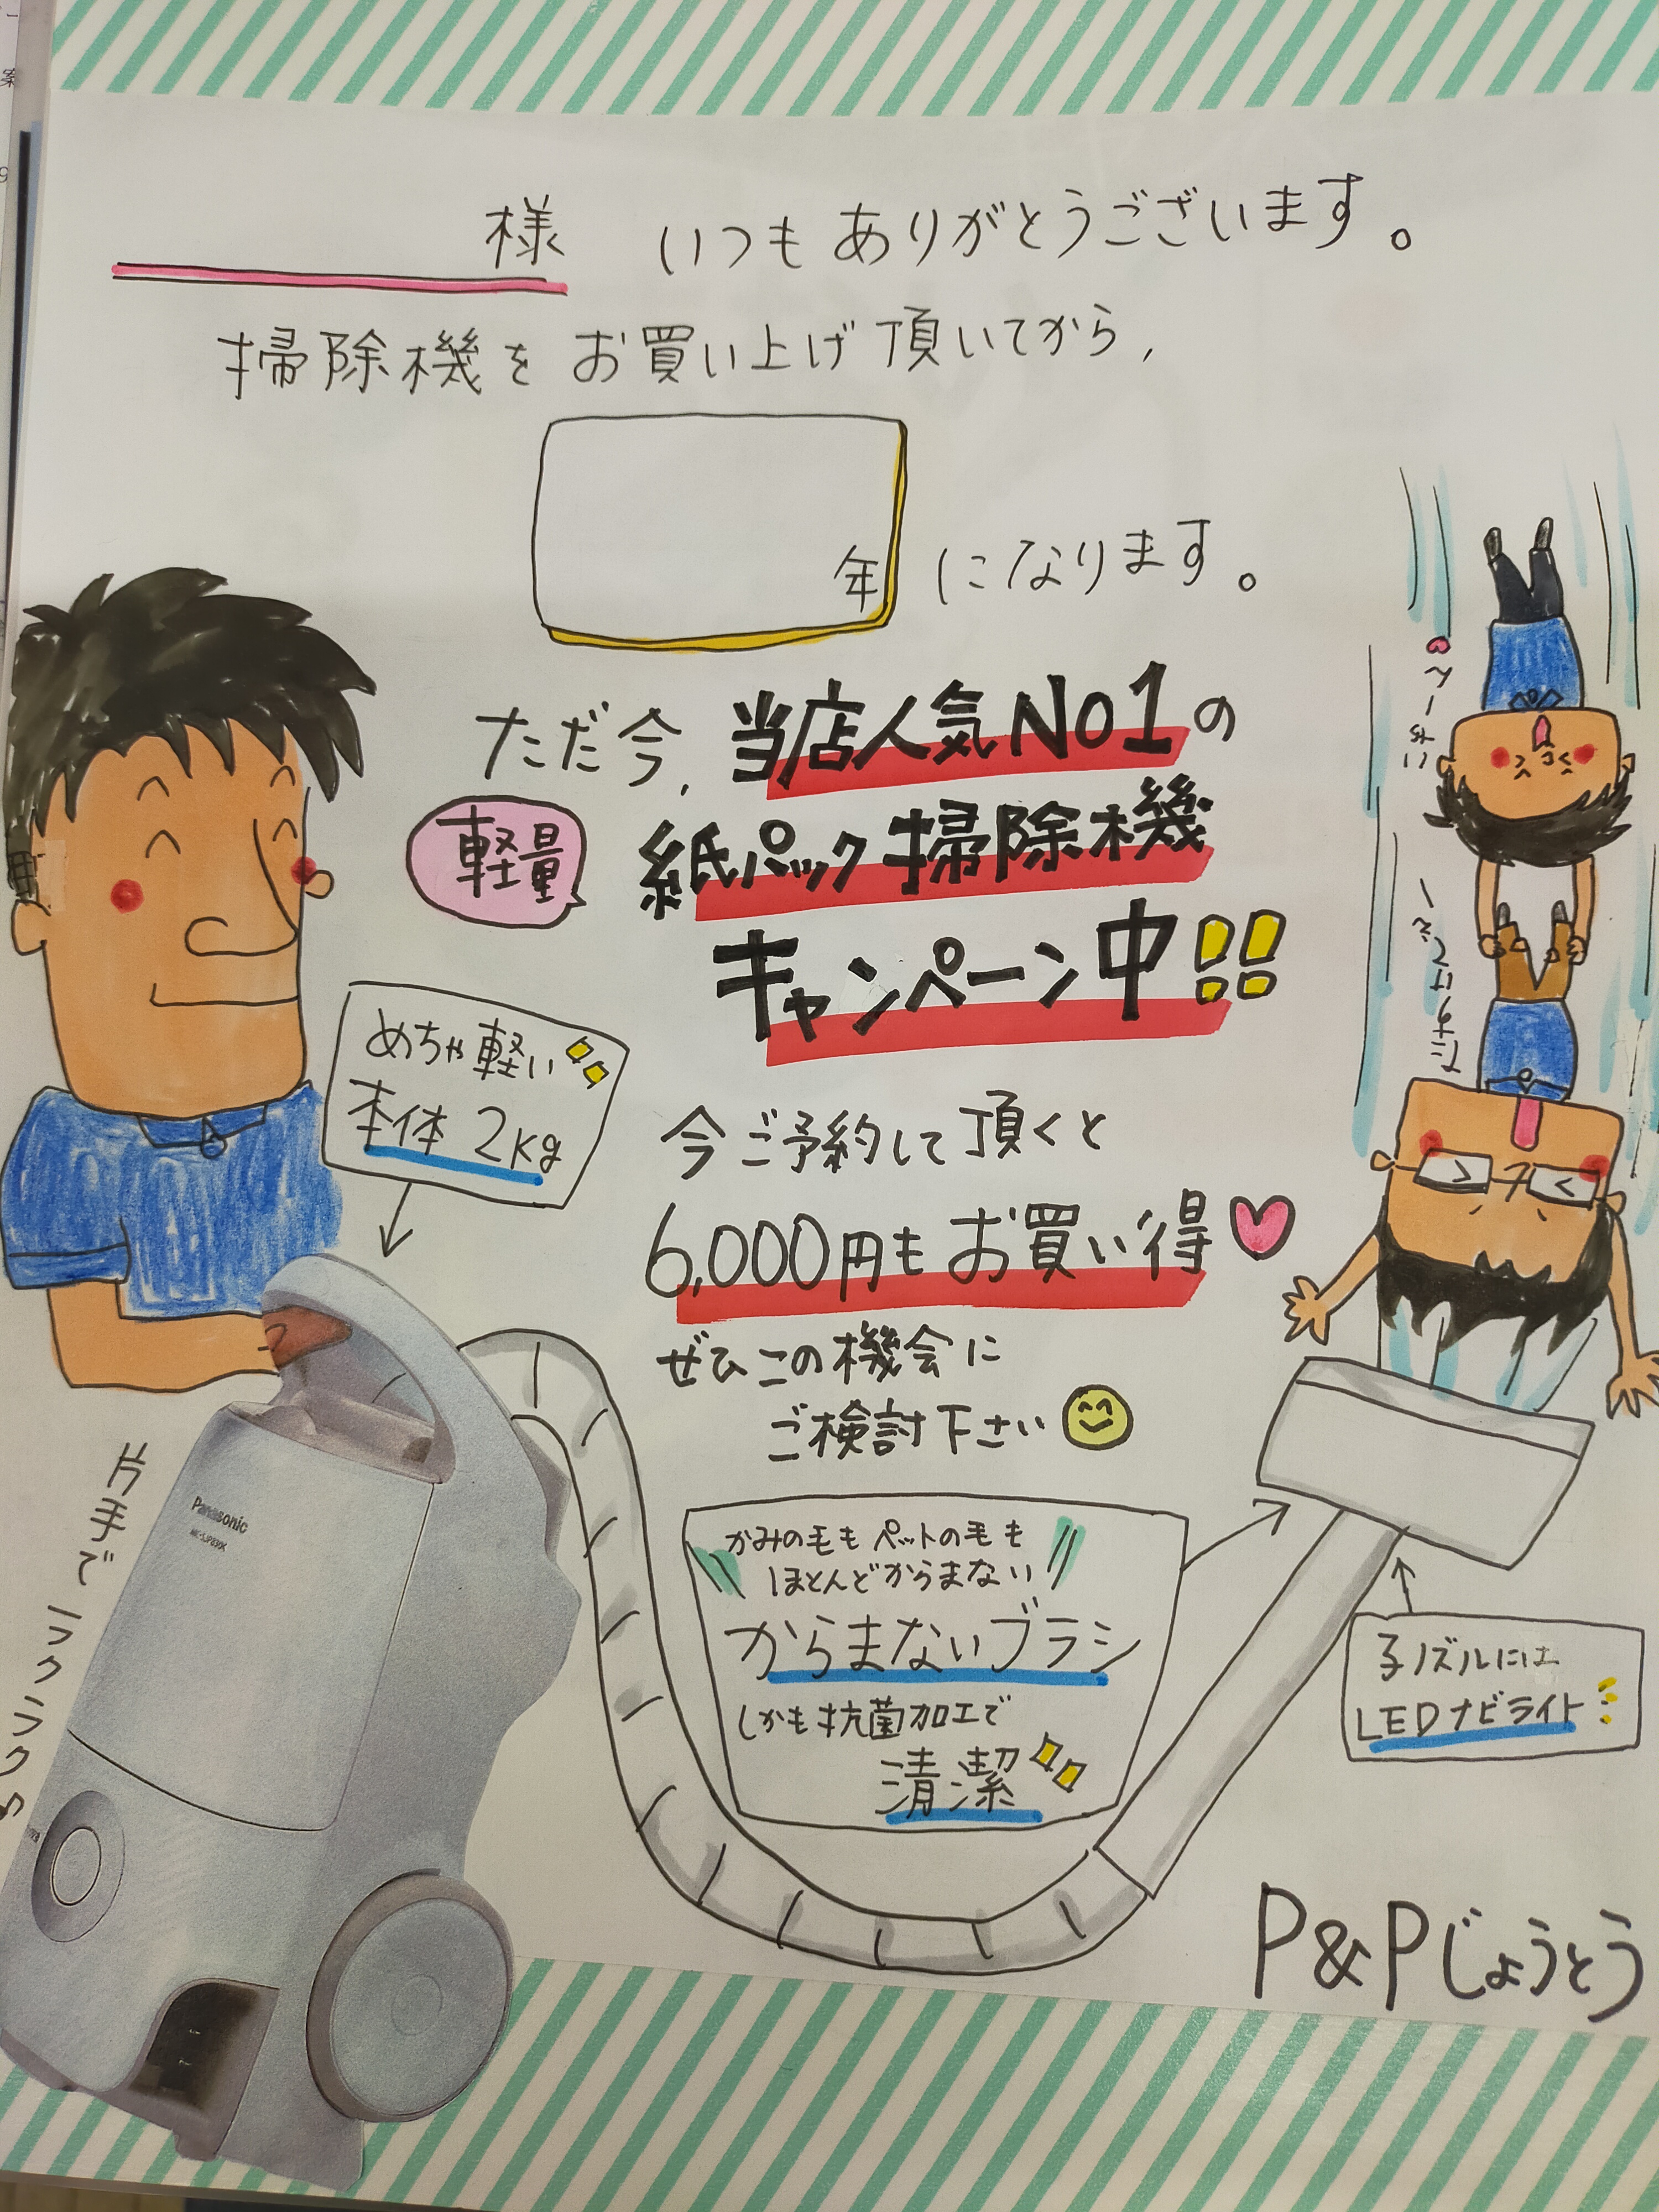 様 いつもありがとうございます。
掃除機をお買い上げ頂いてから、
年 になります。
ただ今、当店人気No1の
軽量 紙パック掃除機
キャンペーン中!!
めちゃ軽い
本体 2kg
今ご予約して頂くと
6,000円もお買い得
ぜひこの機会に
ご検討下さい
はい〜
たすけて〜
片手でラクラク♪
Panasonic
かみの毛もペットの毛も
ほとんどからまない
からまないブラシ
しかも抗菌加工で
清潔
子ノズルには
LEDナビライト
P&Pじょうとう